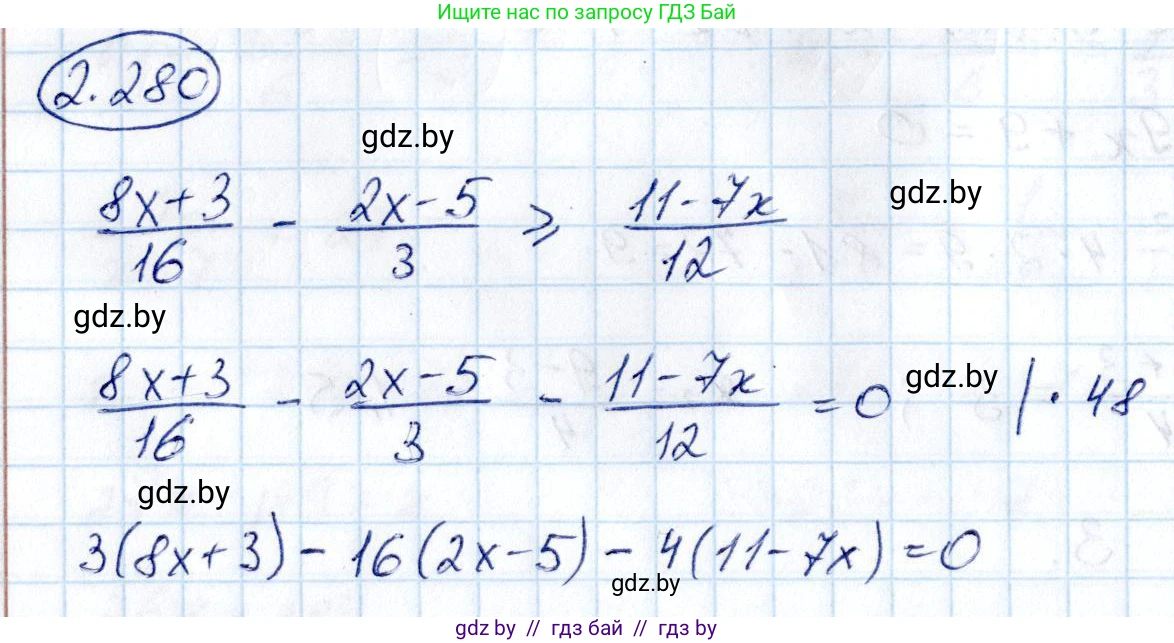 Ищите нас по запросу ГДЗ Бай
2.280
gdz.by
(8x+3)/16 - (2x-5)/3 ⩾ (11-7x)/12
gdz.by
gdz.by
(8x+3)/16 - (2x-5)/3 - (11-7x)/12 = 0 | · 48
gdz.by
gdz.by
3(8x+3) - 16(2x-5) - 4(11-7x) = 0
gdz.by
gdz.by // гдз бай // гдз by